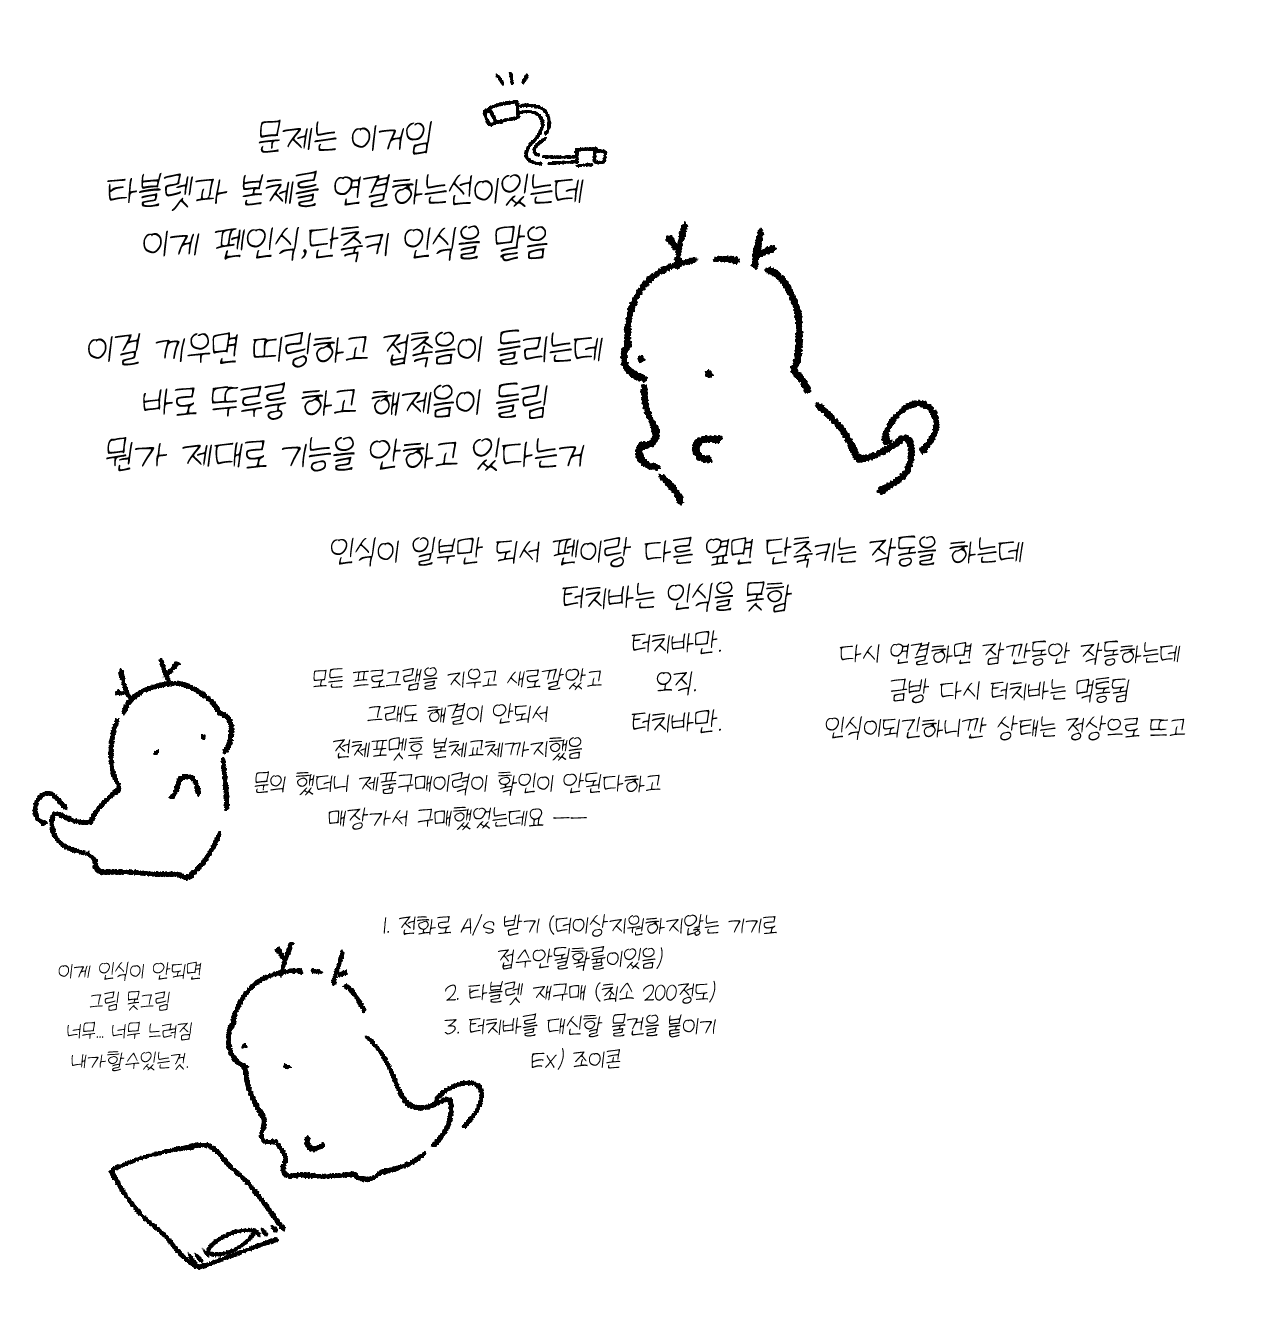 문제는 이거임
타블렛과 본체를 연결하는선이있는데
이게 펜인식,단축키 인식을 맡음
이걸 끼우면 띠링하고 접촉음이 들리는데
바로 뚜루룽 하고 해제음이 들림
뭔가 제대로 기능을 안하고 있다는거
인식이 일부만 되서 펜이랑 다른 옆면 단축키는 작동을 하는데
터치바는 인식을 못함
터치바만.
오직.
터치바만.
다시 연결하면 잠깐동안 작동하는데
금방 다시 터치바는 먹통됨
인식이되긴하니깐 상태는 정상으로 뜨고
모든 프로그램을 지우고 새로깔았고
그래도 해결이 안되서
전체포멧후 본체교체까지했음
문의 했더니 제품구매이력이 확인이 안된다하고
매장가서 구매했었는데요 ㅡㅡ
이게 인식이 안되면
그림 못그림
너무... 너무 느려짐
내가할수있는것.
1. 전화로 A/S 받기 (더이상지원하지않는 기기로
접수안될확률이있음)
2. 타블렛 재구매 (최소 200정도)
3. 터치바를 대신할 물건을 붙이기
EX) 조이콘